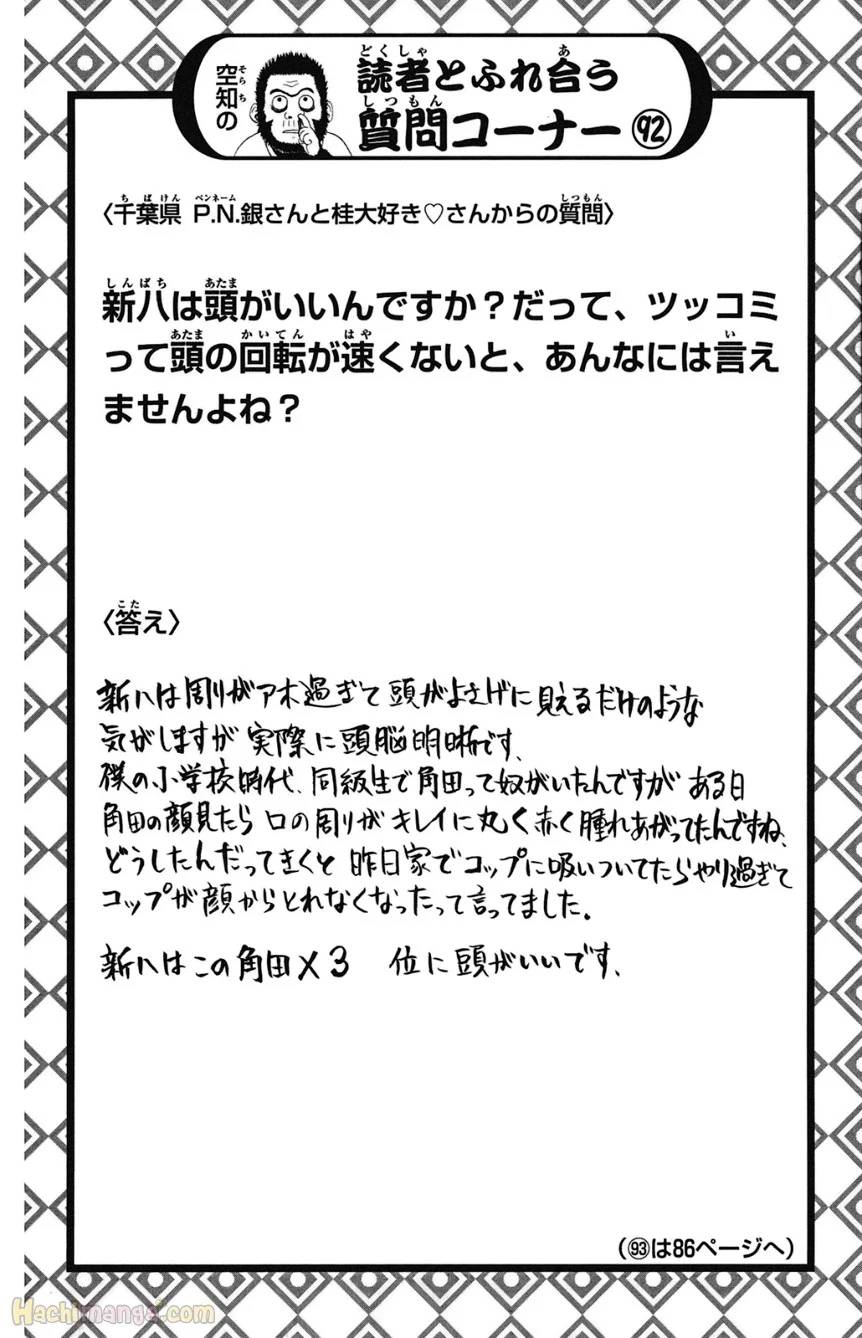 空知の
読者とふれ合う
質問コーナー㊒
〈千葉県 P.N.銀さんと桂大好き♡さんからの質問〉
新八は頭がいいんですか？だって、ツッコミ
って頭の回転が速くないと、あんなには言え
ませんよね？
〈答え〉
新八は周りがアホ過ぎて頭がよさげに見えるだけのような
気がしますが実際に頭脳明晰です、
僕の小学校時代、同級生で角田って奴がいたんですが ある日
角田の顔見たら 口の周りが キレイに丸く赤く腫れあがってたんですね、
どうしたんだってきくと 昨日家でコップに吸いついてたらやり過ぎて
コップが顔からとれなくなったって言ってました。
新八はこの角田×3 位に頭がいいです、
(93は86ページへ)
Hachimanga.com